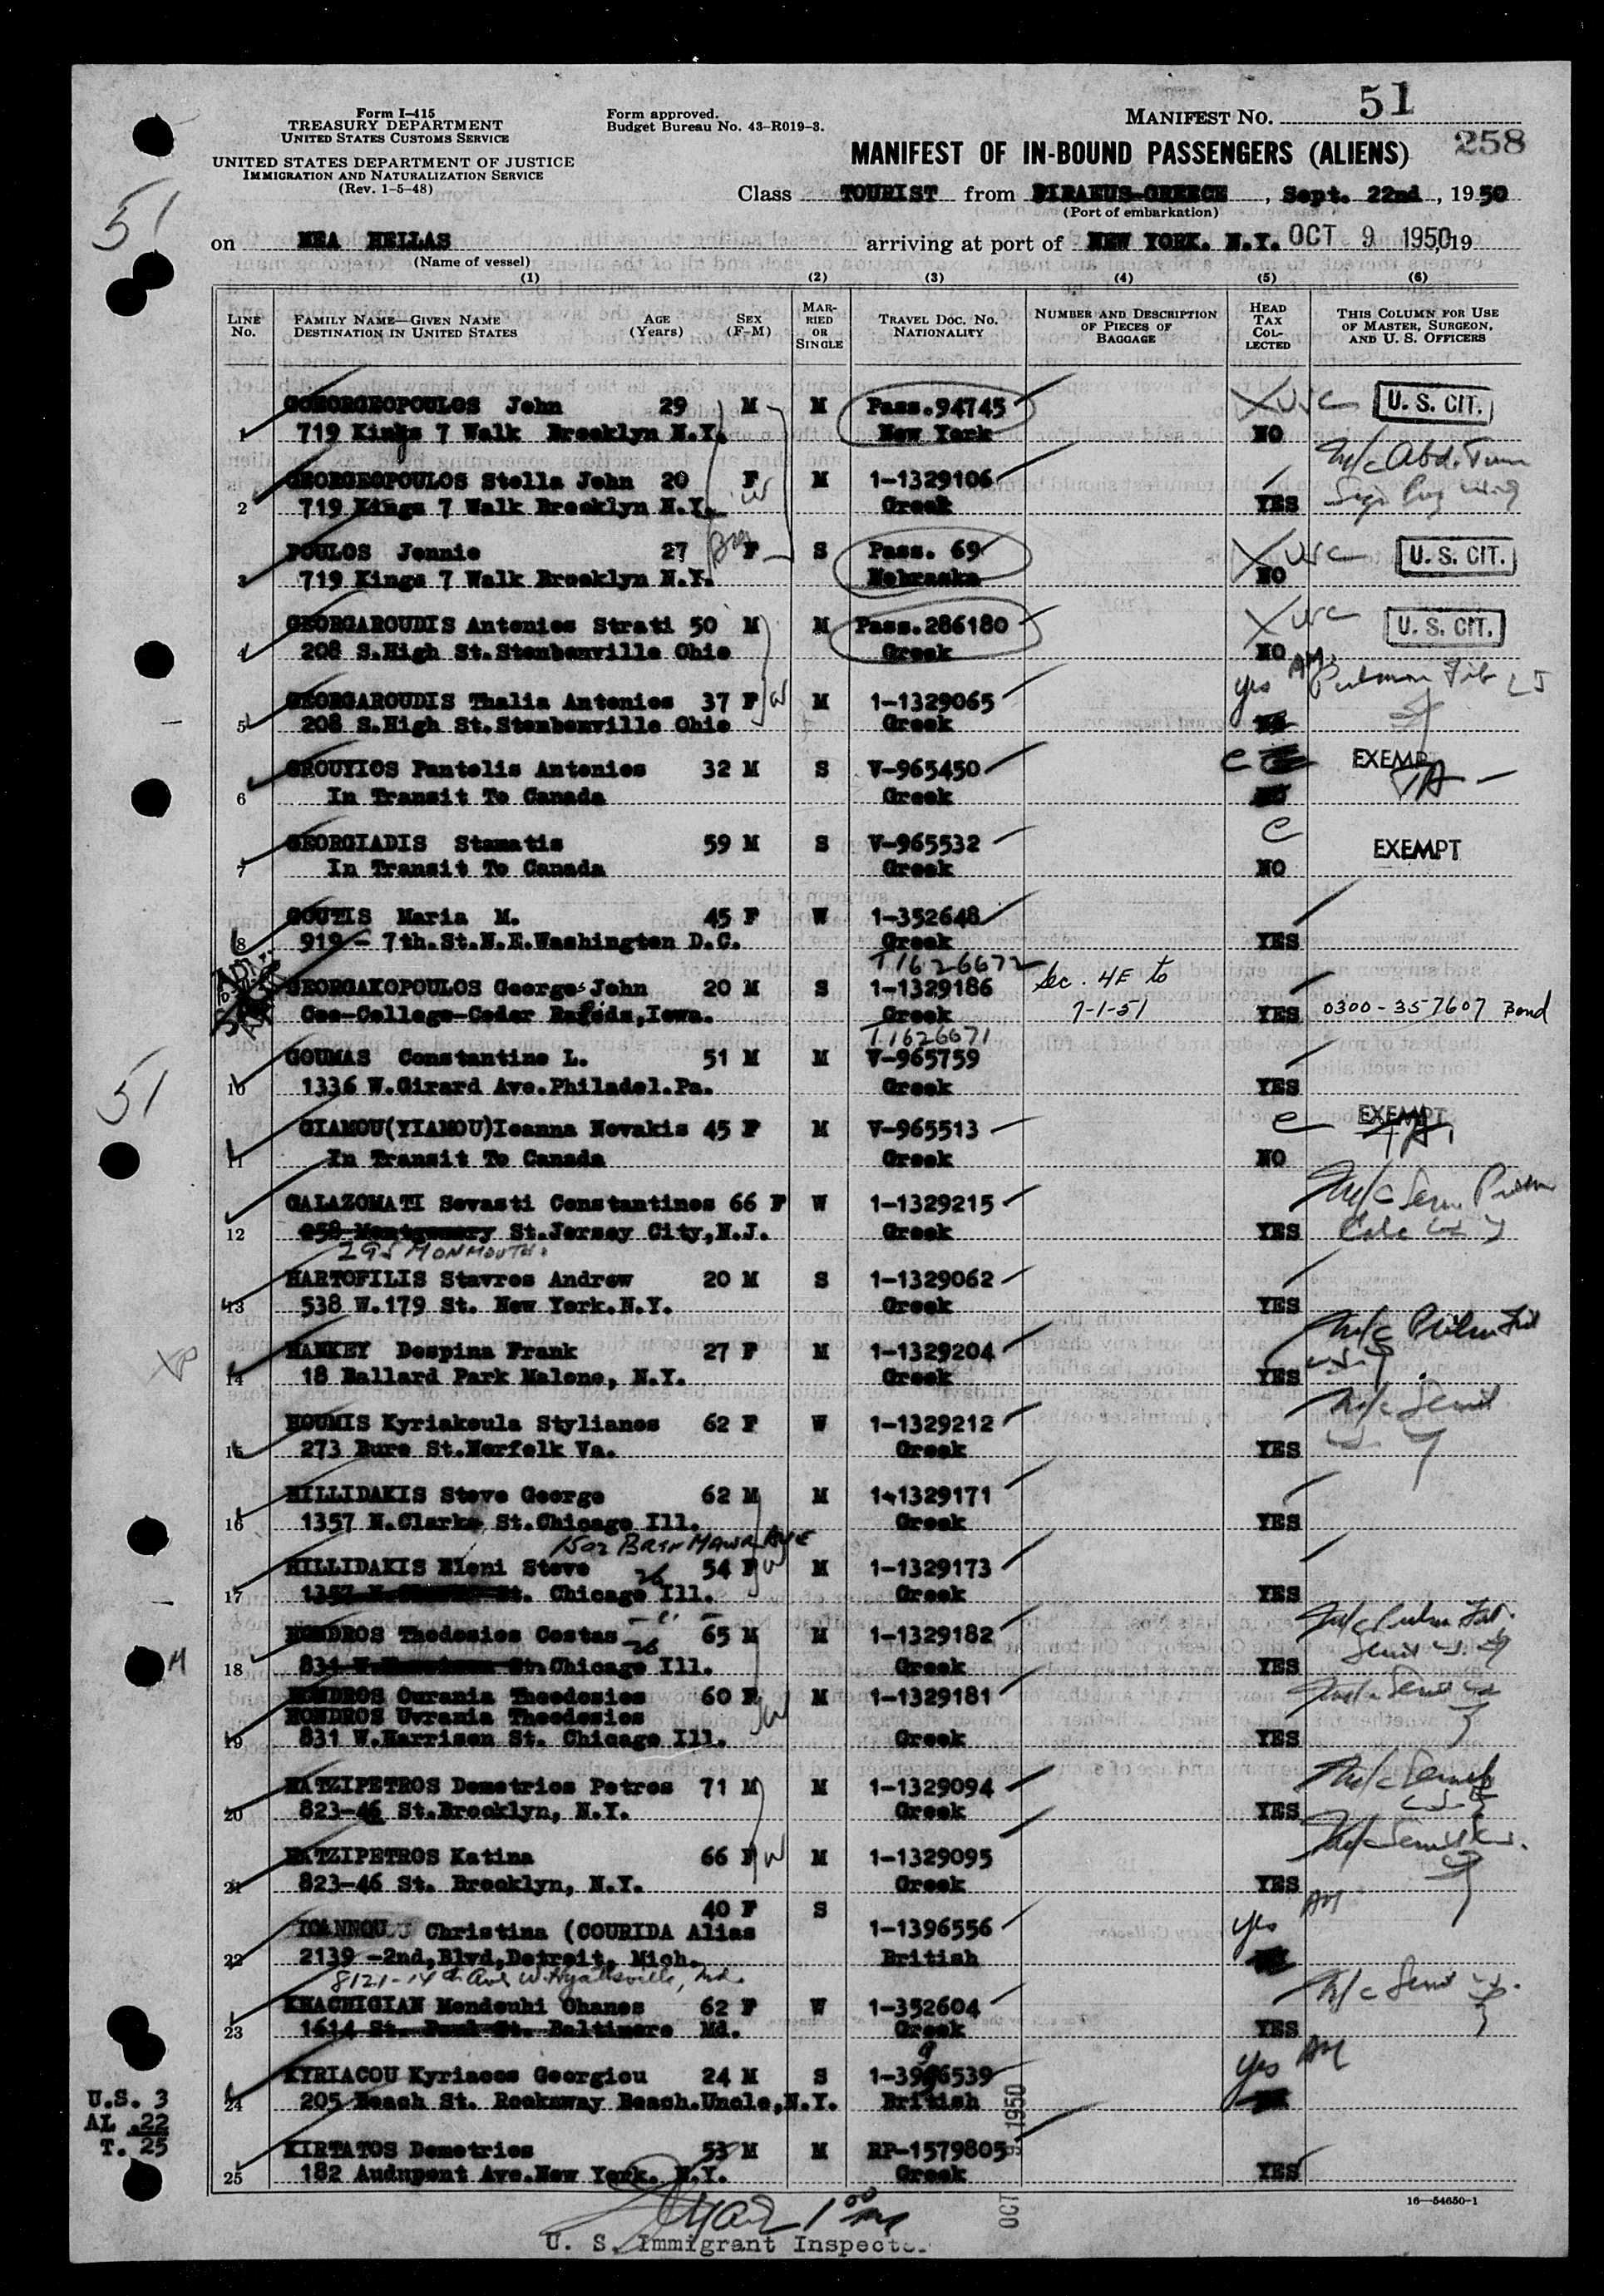 Form I-415
TREASURY DEPARTMENT
UNITED STATES CUSTOMS SERVICE
UNITED STATES DEPARTMENT OF JUSTICE
IMMIGRATION AND NATURALIZATION SERVICE
(Rev. 1-5-48)
Form approved.
Budget Bureau No. 43-R019-3.
MANIFEST NO. 51
258
MANIFEST OF IN-BOUND PASSENGERS (ALIENS)
51
Class TOURIST from PIRAEUS-GREECE, Sept. 22nd, 1950
(Port of embarkation)
on NEA HELLAS arriving at port of NEW YORK. N.Y. OCT 9 1950, 19
(Name of vessel)
(1) (2) (3) (4) (5) (6)
LINE No. FAMILY NAME—GIVEN NAME DESTINATION IN UNITED STATES AGE (Years) SEX (F-M) MARRIED OR SINGLE TRAVEL DOC. NO. NATIONALITY NUMBER AND DESCRIPTION OF PIECES OF BAGGAGE HEAD TAX COLLECTED THIS COLUMN FOR USE OF MASTER, SURGEON, AND U. S. OFFICERS
John 29 M M Pass.94745 usc U. S. CIT.
1 719 Kings 7 Walk Brooklyn N.Y. New York NO
GEORGEOPOULOS Stella John 20 F M 1-1329106 m/c
2 719 Kings 7 Walk Brooklyn N.Y. Greek YES
POULOS Jennie 27 F S Pass. 69 usc U. S. CIT.
3 719 Kings 7 Walk Brooklyn N.Y. Nebraska NO
GEORGAROUDIS Antonios Strati 50 M M Pass.286180 usc U. S. CIT.
4 208 S.High St.Stenbenville Ohio Greek NO
GEORGAROUDIS Thalia Antonios 37 F W M 1-1329065 yes AM
5 208 S.High St.Stenbenville Ohio Greek
GROUYIOS Pantelis Antonios 32 M S V-965450 C EXEMPT
6 In Transit To Canada Greek
GEORGIADIS Stamatis 59 M S V-965532 C EXEMPT
7 In Transit To Canada Greek NO
GOUTIS Maria M. 45 F W 1-352648
8 919 - 7th.St.N.E.Washington D.C. Greek YES
T1626672
GEORGAKOPOULOS George John 20 M S 1-1329186 Sec. 4E to
Coe-College-Cedar Rapids,Iowa. Greek 7-1-51 YES 0300-357607 Bond
T1626671
GOUMAS Constantine L. 51 M M V-965759
10 1336 W.Girard Ave.Philadel.Pa. Greek YES
51
GIAMOU(YIAMOU)Ioanna Novakis 45 F M V-965513 C EXEMPT
11 In Transit To Canada Greek NO
GALAZOMATI Sevasti Constantinos 66 F W 1-1329215 m/c
12 258 Montgomery St.Jersey City,N.J. Greek YES
295 MONMOUTH.
HARTOFILIS Stavros Andrew 20 M S 1-1329062
13 538 W.179 St. New York.N.Y. Greek YES
HANKEY Despina Frank 27 F M 1-1329204 m/c
14 18 Ballard Park Malone, N.Y. Greek YES
HOUMIS Kyriakoula Stylianos 62 F W 1-1329212 m/c
15 273 Bure St.Norfolk Va. Greek YES
HILLIDAKIS Steve George 62 M M 1-1329171
16 1357 N.Clarke St.Chicago Ill. Greek YES
1502 BRYN MAWR AVE
HILLIDAKIS Eleni Steve 54 F W M 1-1329173
17 St. 26 Chicago Ill. Greek YES
HONDROS Theodosios Costas 65 M M 1-1329182 m/c
18 831 W.Harrison St. 26 Chicago Ill. Greek YES
HONDROS Ourania Theodosios 60 F W M 1-1329181
HONDROS Uvrania Theodosios
19 831 W.Harrison St. Chicago Ill. Greek YES
HATZIPETROS Demetrios Petros 71 M M 1-1329094 m/c
20 823-46 St.Brooklyn, N.Y. Greek YES
HATZIPETROS Katina 66 F W M 1-1329095 m/c
21 823-46 St. Brooklyn, N.Y. Greek YES
40 F S
IOANNOU Christina (COURIDA Alias 1-1396556 yes AM
22 2139 -2nd,Blvd,Detroit, Mich. British
8121-14th Ave W.Hyattsville, Md.
KHACHIGIAN Mendouhi Ohanes 62 F W 1-352604 m/c
23 1614 St. Paul St. Baltimore Md. Greek YES
KYRIACOU Kyriacos Georgiou 24 M S yes AM
24 205 Beach St. Rockaway Beach.Uncle,N.Y. British
KIRTATOS Demetrios 53 M M RP-1579805
25 182 Audupont Ave.New York. N.Y. Greek YES
U.S. 3
AL .22
T. 25
OCT 1950
16—54650-1
U. S. Immigrant Inspector